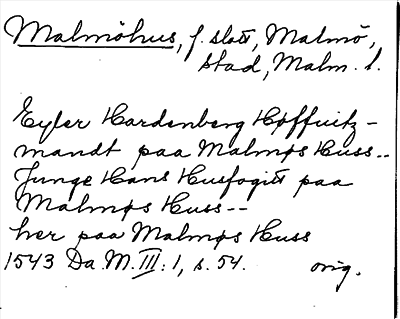 Malmöhus, f. slott, Malmö,
stad, Malm. l.
Eyler Hardenberg Høffuitz-
mandt paa Malmøs Huss --
Junge Hans Husfogitt paa
Malmøs Huss --
her paa Malmøs Huss
1543 Da. M. III: 1, s. 54. orig.